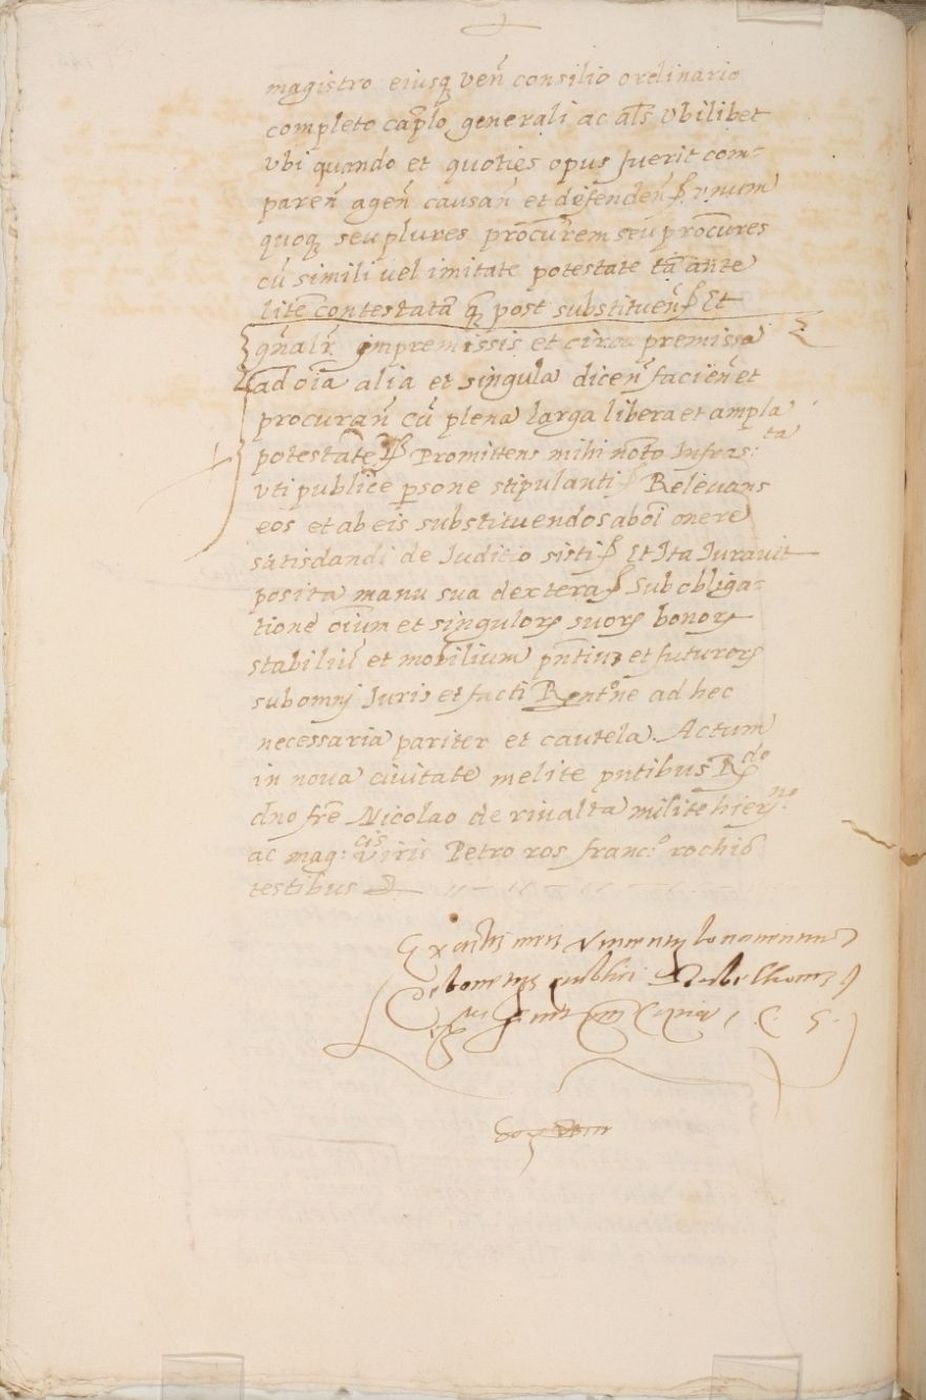 magistro eiusq ven̄ consilio ordinario
completo cap̄lo generali ac al̄s vbilibet
vbi quando et quoties opus fuerit com=
paren̄ agen̄ causan̄ et defenden̄ vnum
quoq seu plures procur̄em seu procur̄es
cū simili vel imitate potestate tā ante
litē contestatā q̄ post substituen̄ Et
gn̄alr̄ inpremissis et circa premissa
ad oīa alia et singula dicen̄ facien̄ et
procuran̄ cū plena larga libera et ampla
potestate Promittens mihi noto Infras:ta
vti publice p̄sone stipulanti Releuans
eos et ab eis substituendos ab oī onere
satisdandi de Iudicio sisti Et Ita Iurauit
posita manu sua dextera Sub obliga=
tione oīum et singulor suor bonor
stabiliū et mobilium pn̄tium et futuror
sub omnj Iuris et facti Rentne ad hec
necessaria pariter et cautela. Actum
in noua ciuitate melite pn̄tibus Rdo
dno fr̄e Nicolao de riualta milite hiermo
ac mag:cis viris Petro ros franc:o rochio
testibus
Ex actis meis Vincentij bonauenture
de bonetijs publici Tabellionis
copia C. S.